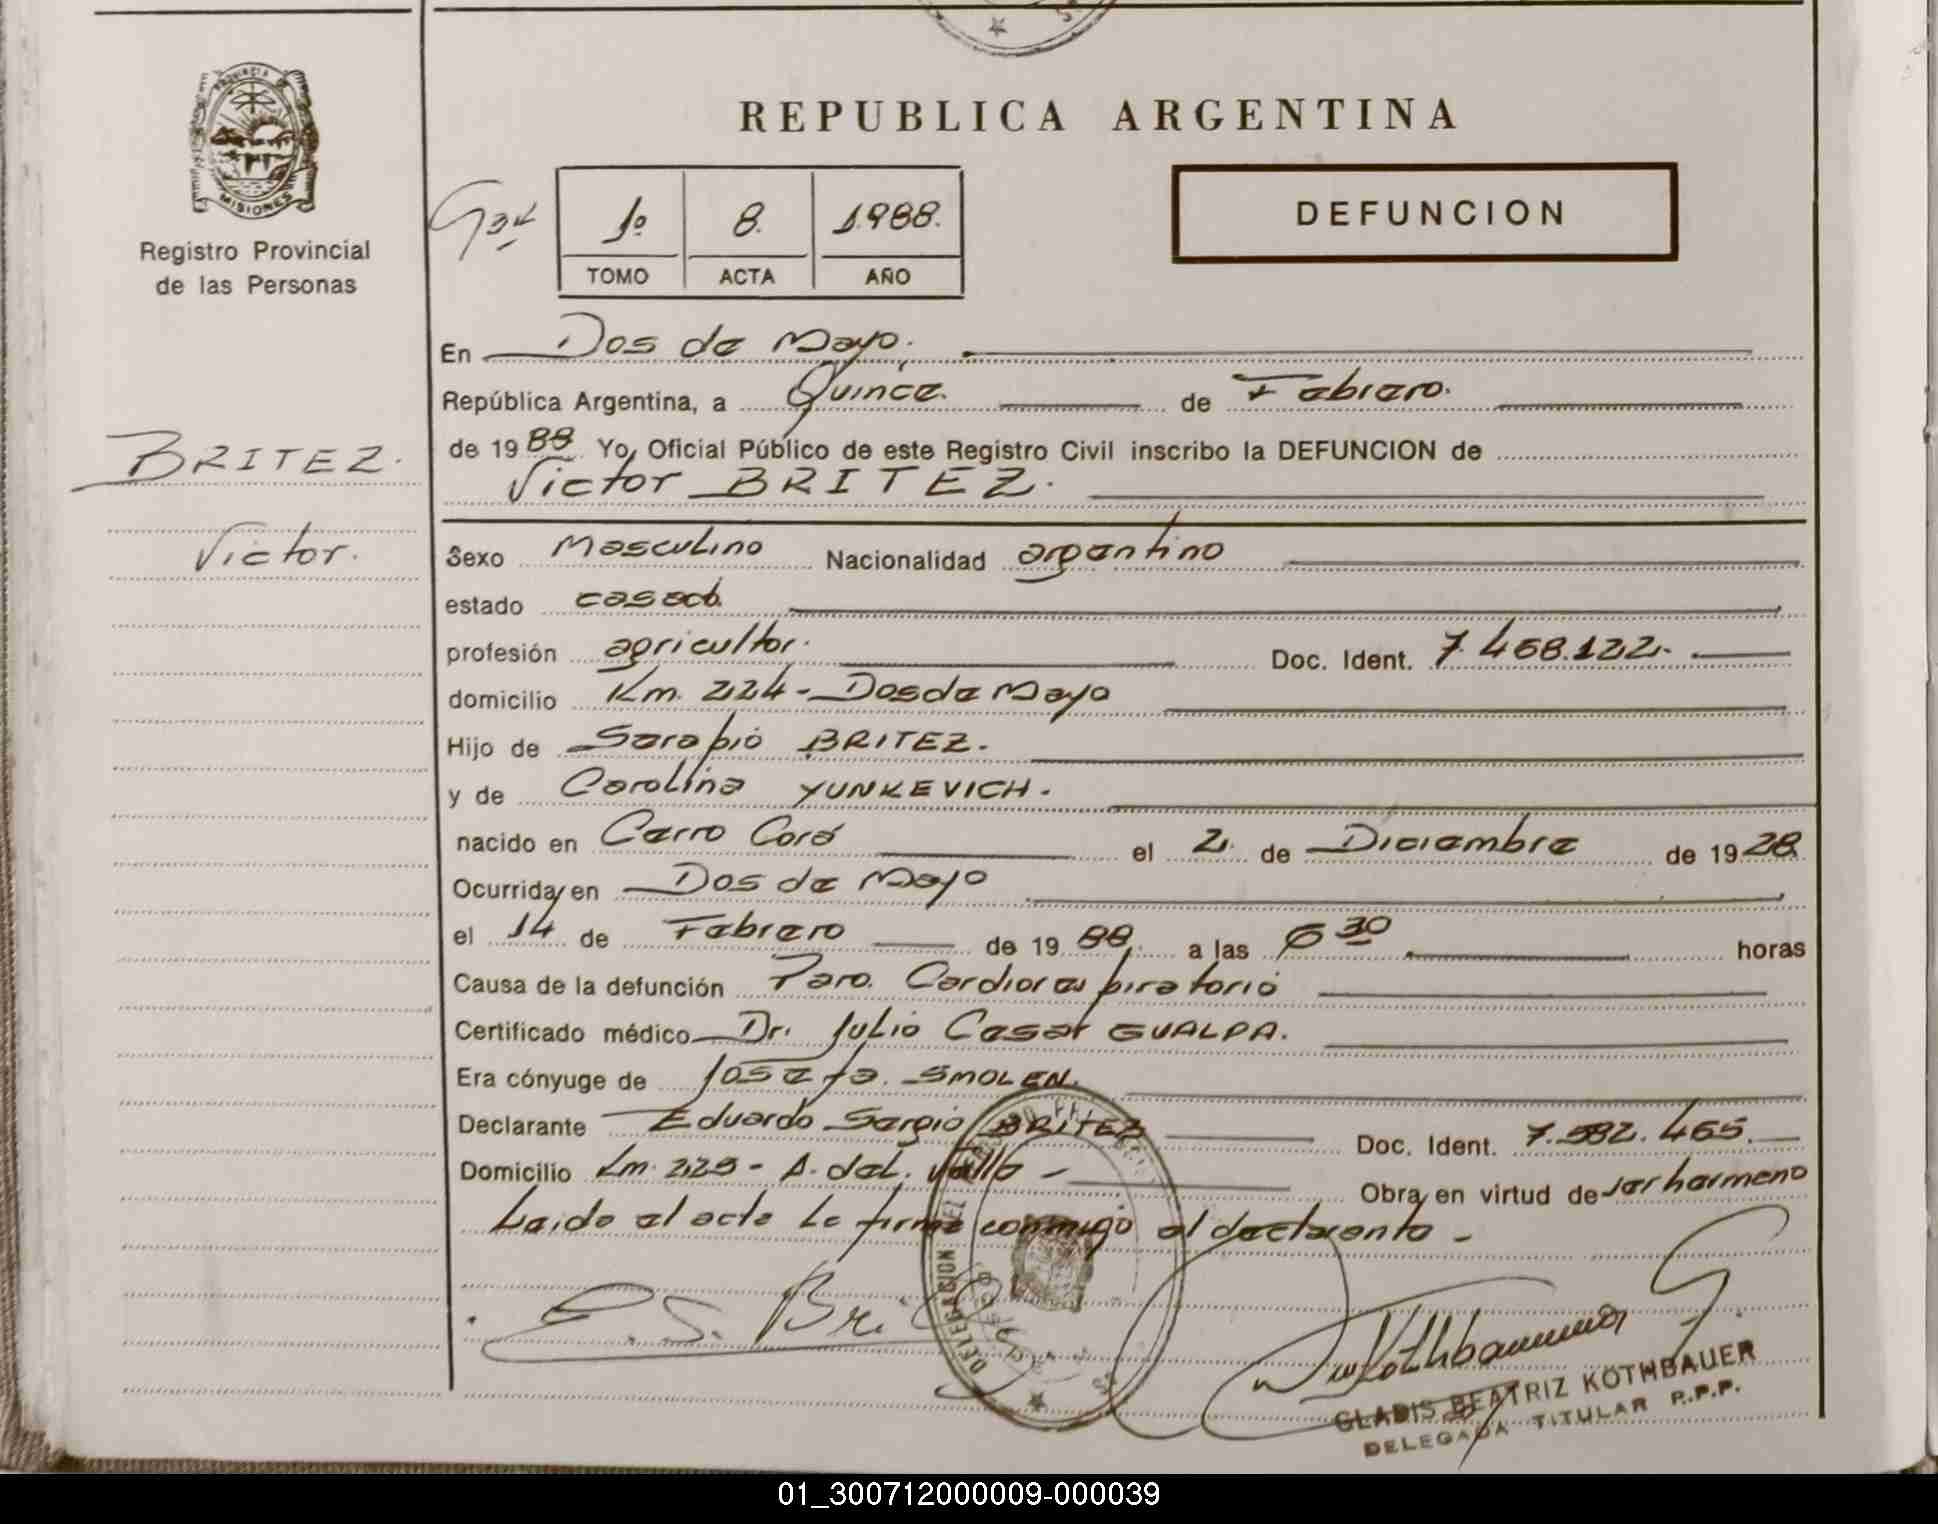 PROVINCIA DE
MISIONES
Registro Provincial
de las Personas
REPUBLICA ARGENTINA
1º 8. 1.988.
TOMO ACTA AÑO
DEFUNCION
En Dos de Mayo.
República Argentina, a Quince. de Febrero.
de 1988 Yo, Oficial Público de este Registro Civil inscribo la DEFUNCION de
Victor BRITEZ.
BRITEZ.
Victor.
Sexo Masculino Nacionalidad argentino
estado casado.
profesión agricultor. Doc. Ident. 7.468.122.-
domicilio Km. 224 - Dos de Mayo
Hijo de Serapio BRITEZ.
y de Carolina YUNKEVICH.
nacido en Cerro Corá el 2 de Diciembre de 1928
Ocurrida, en Dos de Mayo
el 14 de Febrero de 1988. a las 6 30 horas
Causa de la defunción Paro. Cardiorespiratorio
Certificado médico Dr. Julio Cesar GUALPA.
Era cónyuge de Josefa. SMOLEN.
Declarante Eduardo Sergio BRITEZ Doc. Ident. 7.582.465.
Domicilio Km. 225 - A. del. Valle - Obra, en virtud de ser hermano
Leido el acta la firma conmigo el declarante -
DELEGACION DEL
E. S. Bri
GLADIS BEATRIZ KOTHBAUER
DELEGADA TITULAR R.P.P.
01_300712000009-000039